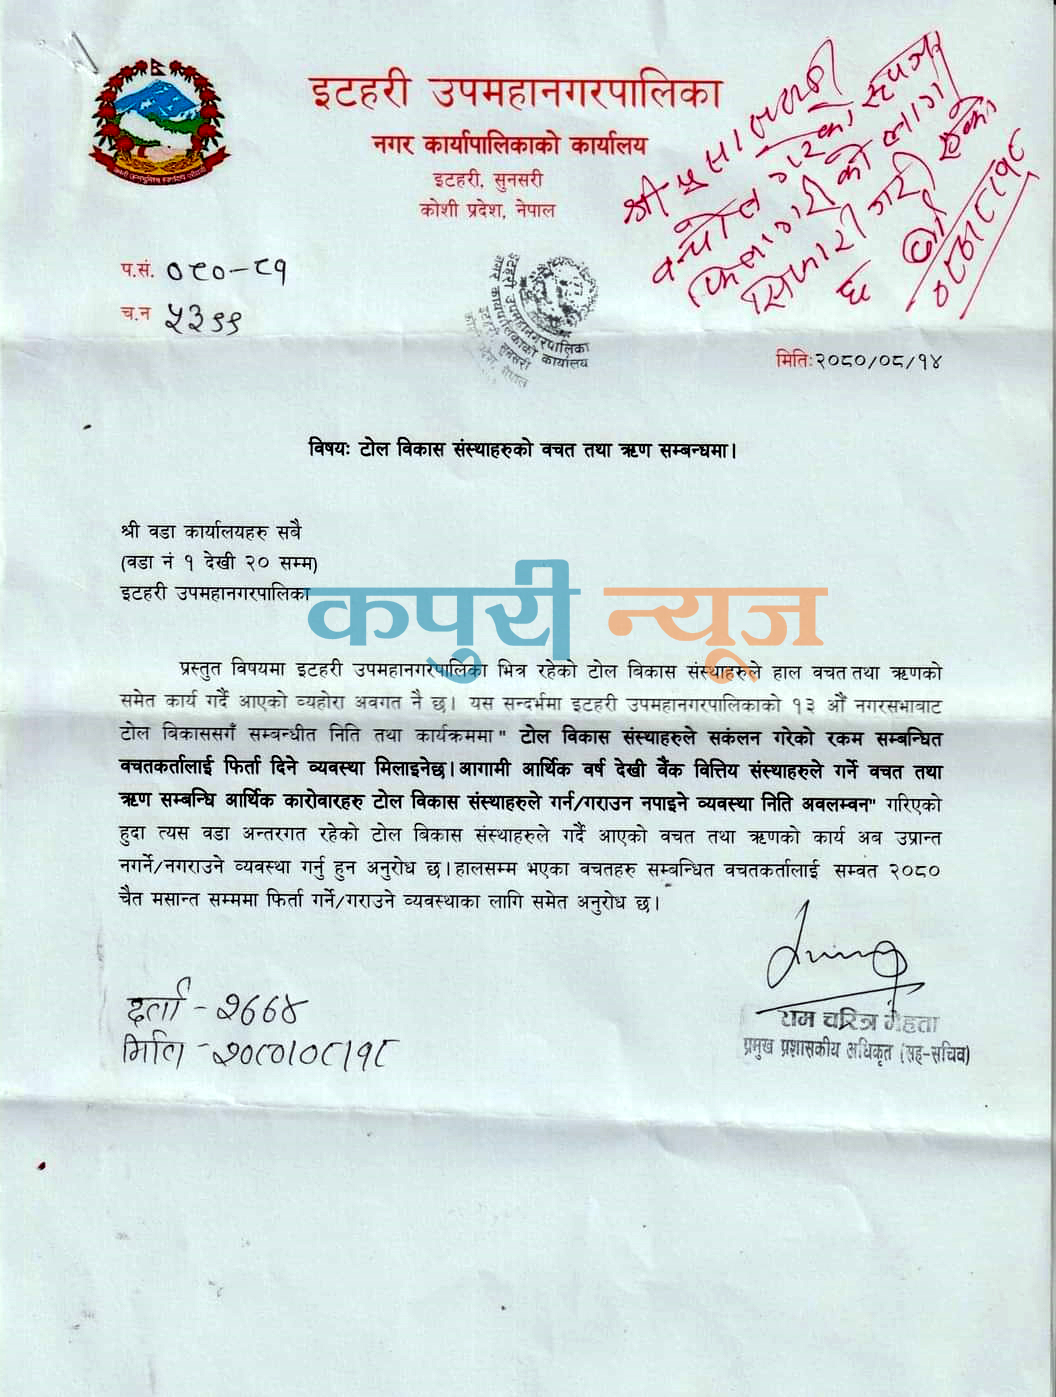 इटहरी उपमहानगरपालिका
नगर कार्यपालिकाको कार्यालय
इटहरी, सुनसरी
कोशी प्रदेश, नेपाल
प.सं. ०८०-८१
च.न ५३९९
इटहरी उपमहानगरपालिका
नगर कार्यपालिकाको कार्यालय
इटहरी, सुनसरी
नेपाल
मितिः२०८०/०८/१४
विषयः टोल विकास संस्थाहरुको वचत तथा ऋण सम्बन्धमा।
श्री वडा कार्यालयहरु सबै
(वडा नं १ देखी २० सम्म)
इटहरी उपमहानगरपालिका
कपुरी न्यूज
प्रस्तुत विषयमा इटहरी उपमहानगरपालिका भित्र रहेको टोल विकास संस्थाहरुले हाल वचत तथा ऋणको
समेत कार्य गर्दै आएको व्यहोरा अवगत नै छ। यस सन्दर्भमा इटहरी उपमहानगरपालिकाको १३ औं नगरसभाबाट
टोल विकाससगँ सम्बन्धीत निति तथा कार्यक्रममा" टोल विकास संस्थाहरुले सकंलन गरेको रकम सम्बन्धित
वचतकर्तालाई फिर्ता दिने व्यवस्था मिलाइनेछ।आगामी आर्थिक वर्ष देखी बैंक वित्तिय संस्थाहरुले गर्ने वचत तथा
ऋण सम्बन्धि आर्थिक कारोवारहरु टोल विकास संस्थाहरुले गर्न/गराउन नपाइने व्यवस्था निति अवलम्वन" गरिएको
हुदा त्यस वडा अन्तरगत रहेको टोल बिकास संस्थाहरुले गर्दै आएको वचत तथा ऋणको कार्य अब उप्रान्त
नगर्ने/नगराउने व्यवस्था गर्नु हुन अनुरोध छ।हालसम्म भएका वचतहरु सम्बन्धित वचतकर्तालाई सम्वत २०८०
चैत मसान्त सम्ममा फिर्ता गर्ने/गराउने व्यवस्थाका लागि समेत अनुरोध छ।
दर्ता - २६६४
मिति - २०८०।०८।१८
राम चरित्र मेहता
प्रमुख प्रशासकीय अधिकृत (सह-सचिव)